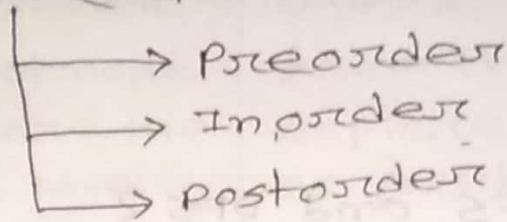 Preorder
Inorder
postorder